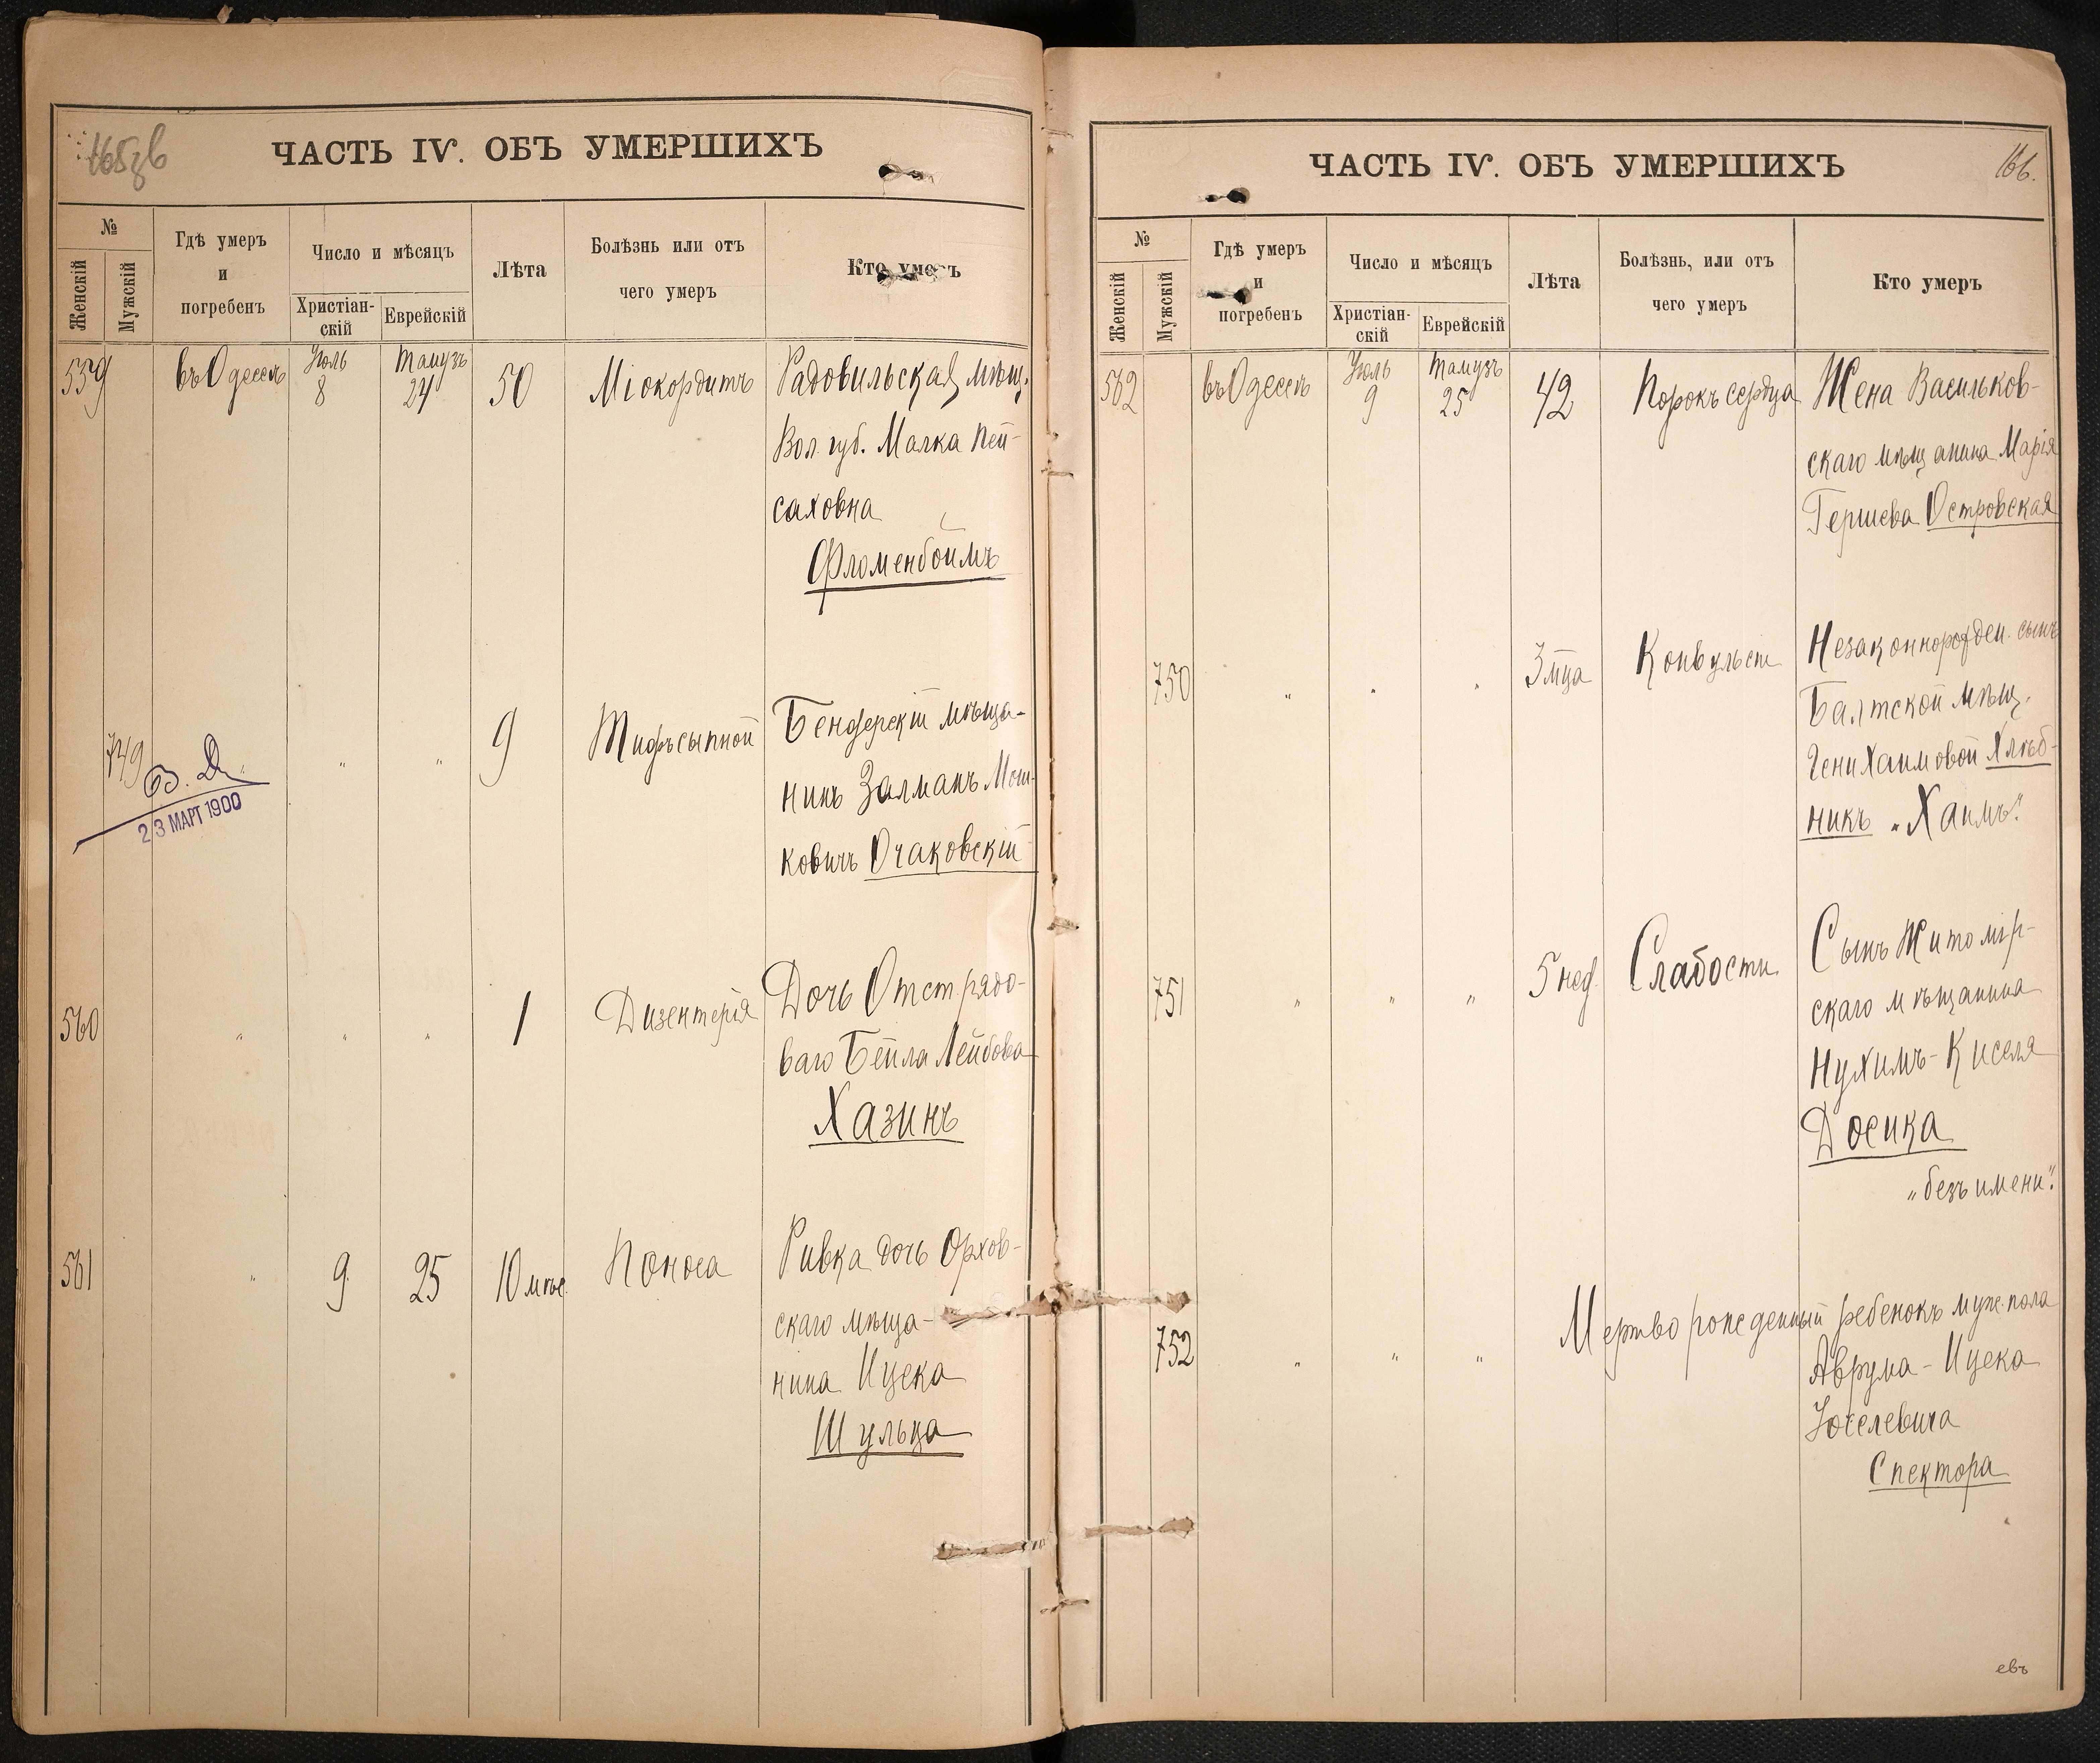 165об
ЧАСТЬ IV. ОБЪ УМЕРШИХЪ
№
Женскій
Мужскій
Гдѣ умеръ
и
погребенъ
Число и мѣсяцъ
Христіан-
скій
Еврейскій
Лѣта
Болѣзнь или отъ
чего умеръ
Кто умеръ
559
въ Одессѣ
Іюль
8
Тамузъ
24
50
Міокордитъ
Радовильская мѣщ.
Вол. губ. Малка Пей-
саховна
Фломенбоимъ
749
"
"
"
9
Тифъ сыпной
Бендерскій мѣща-
нинъ Залманъ Мош-
ковичъ Очаковскій
23 МАРТ 1900
560
"
"
"
1
Дизентерія
Дочь Отст. рядо-
ваго Бейла Лейбова
Хазинъ
561
"
9
25
10 мѣс.
Поноса
Ривка дочь Орхов-
скаго мѣща-
нина Ицека
Шульца
166.
ЧАСТЬ IV. ОБЪ УМЕРШИХЪ
№
Женскій
Мужскій
Гдѣ умеръ
и
погребенъ
Число и мѣсяцъ
Христіан-
скій
Еврейскій
Лѣта
Болѣзнь, или отъ
чего умеръ
Кто умеръ
562
въ Одессѣ
Іюль
9
Тамузъ
25
42
Порокъ сердца
Жена Васильков-
скаго мѣщанина Марія
Гершева Островская
750
"
"
"
3 м̃ца
Конвульсіи
Незаконнорожден. сынъ
Балтской мѣщ.
Гени Хаимовой Хлѣб-
никъ „Хаимъ".
751
"
"
"
5 нед.
Слабости
Сынъ Житомір-
скаго мѣщанина
Нухимъ-Киселя
Досика
„безъ имени".
752
"
"
"
Мертворожденный ребенокъ муж. пола
Аврума-Ицека
Іоселевича
Спектора
евъ